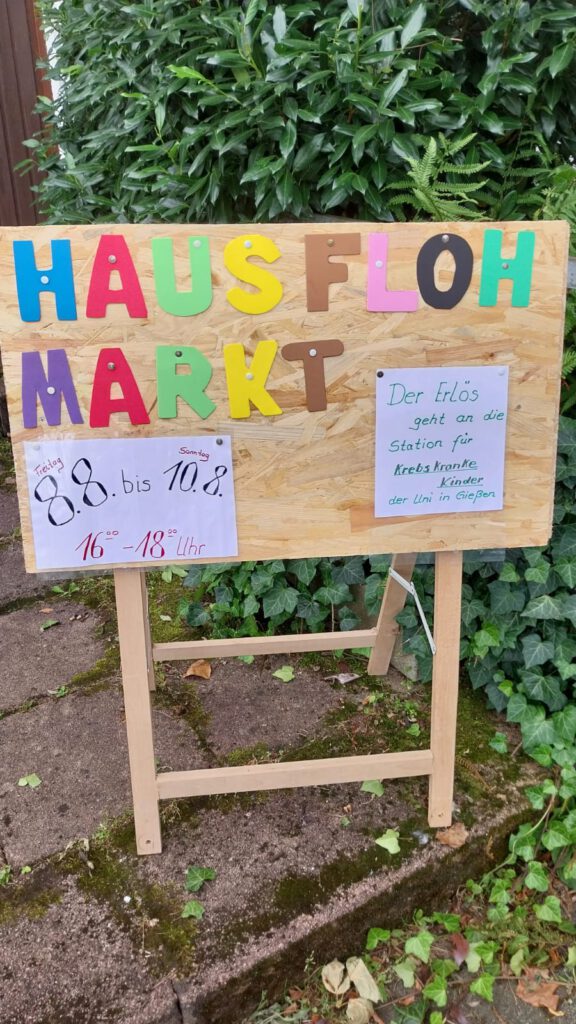 HAUSFLOH
MARKT
Freitag Sonntag
8.8. bis 10.8.
16⁰⁰ - 18⁰⁰ Uhr
Der Erlös
geht an die
Station für
Krebskranke
Kinder
der Uni in Gießen